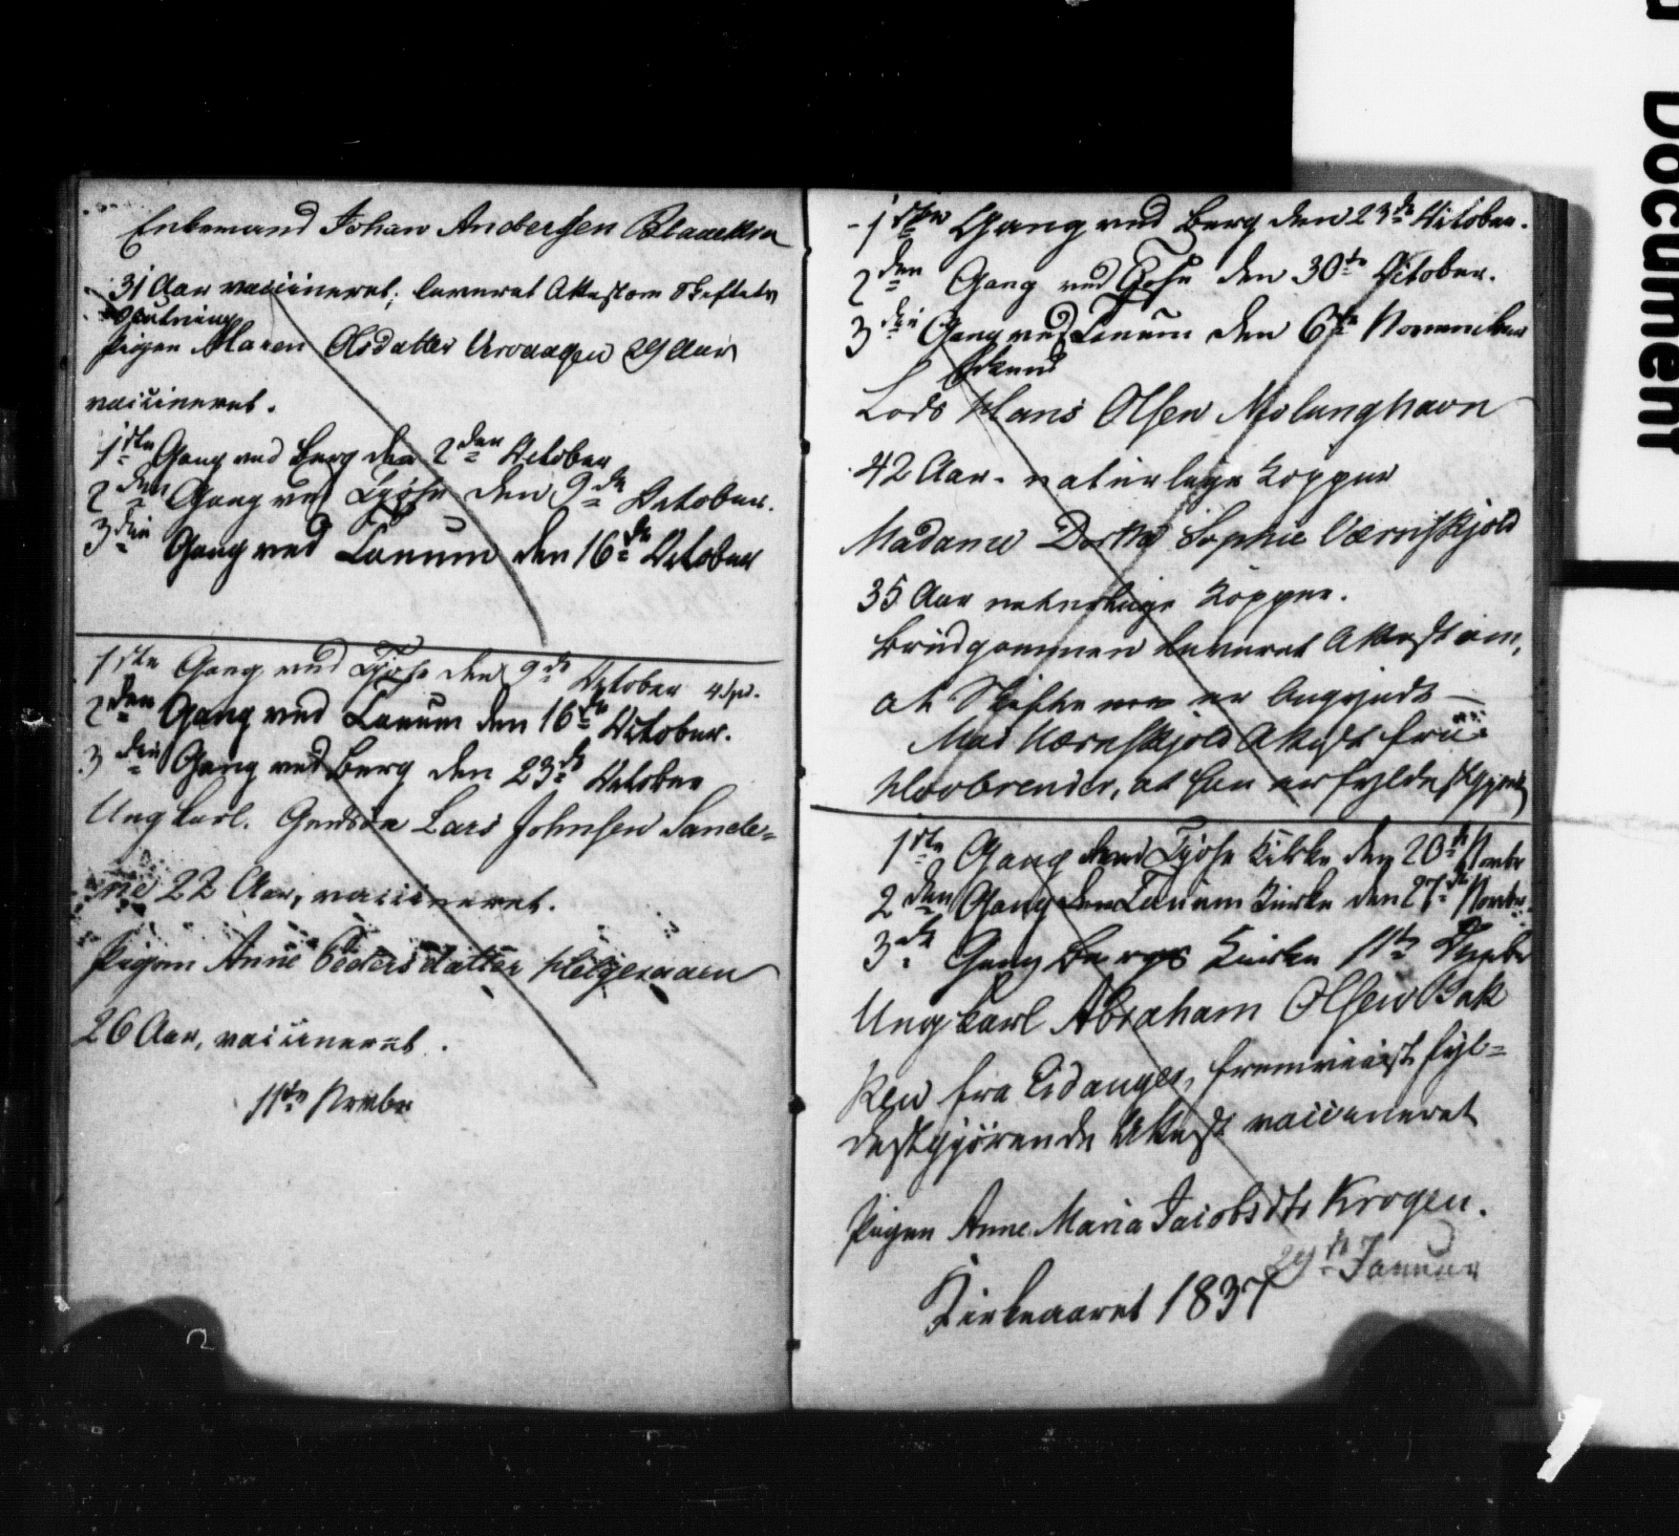 Enkemand Johan Andersen
31 Aar vaccineret; leveret Attest om Skiftets
Slutning
Pigen Maren Olsdatter Vraagen 29 Aar
vaccineret.
1ste Gang ved Berg den 2den October
2den Gang ved Tjøse den 9de October.
3die Gang ved Tanum den 16de October
1ste Gang ved Tjøse den 9de October 4 Spd.
2den Gang ved Tanum den 16de October.
3die Gang ved Berg den 23de October
Ungkarl. Lars Johnsen Sande-
ne 22 Aar, vaccineret.
Pigen Anne Pedersdatter
26 Aar, vaccineret.
11te Novbr
1ste Gang ved Berg den 23de October.
2den Gang ved Tjøse den 30te October.
3die Gang ved Tanum den 6te November
Enkemd
Lods Hans Olsen Molunghavn
42 Aar. naturlige Kopper
Madame Dorthe Sophie Værnskjold
35 Aar naturlige Kopper.
Brudgommen leveret Attest om,
at Skifte er begyndt
Mad Værnskjold Attest fra
at hun er fyldestgjort
1ste Gang Tjøse Kirke den 20de Novbr
2den Gang Tanum Kirke den 27de Novbr.
3de Gang Bergs Kirke 11te Decbr
Ungkarl Abraham Olsen Bak
ken fra Eidanger, fremviist fyl-
destgjørende Attest vaccineret
Pigen Anne Maria Jacobsdtr Krogen.
29de Januar
Kirkeaaret 1837